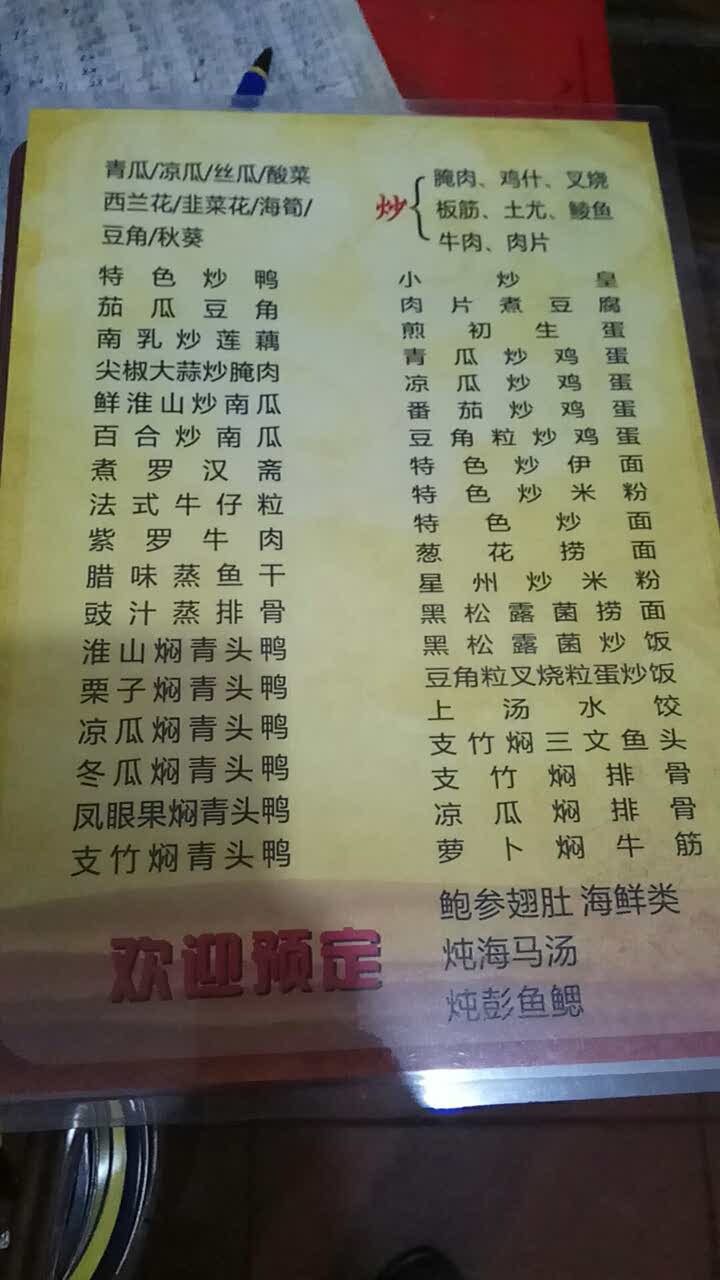 青瓜/凉瓜/丝瓜/酸菜
西兰花/韭菜花/海筍/
豆角/秋葵
炒
腌肉、鸡什、叉烧
板筋、土尤、鲮鱼
牛肉、肉片
特色炒鸭
茄瓜豆角
南乳炒莲藕
尖椒大蒜炒腌肉
鲜淮山炒南瓜
百合炒南瓜
煮罗汉斋
法式牛仔粒
紫罗牛肉
腊味蒸鱼干
豉汁蒸排骨
淮山焖青头鸭
栗子焖青头鸭
凉瓜焖青头鸭
冬瓜焖青头鸭
凤眼果焖青头鸭
支竹焖青头鸭
小炒皇
肉片煮豆腐
煎初生蛋
青瓜炒鸡蛋
凉瓜炒鸡蛋
番茄炒鸡蛋
豆角粒炒鸡蛋
特色炒伊面
特色炒米粉
特色炒面
葱花捞面
星州炒米粉
黑松露菌捞面
黑松露菌炒饭
豆角粒叉烧粒蛋炒饭
上汤水饺
支竹焖三文鱼头
支竹焖排骨
凉瓜焖排骨
萝卜焖牛筋
鲍参翅肚 海鲜类
炖海马汤
炖彭鱼鳃
欢迎预定